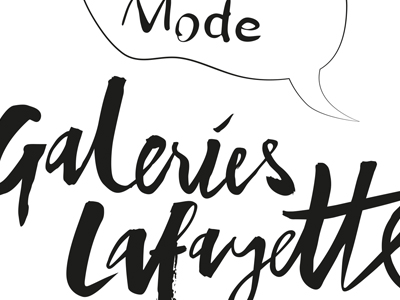 Mode
Galeries
Lafayette